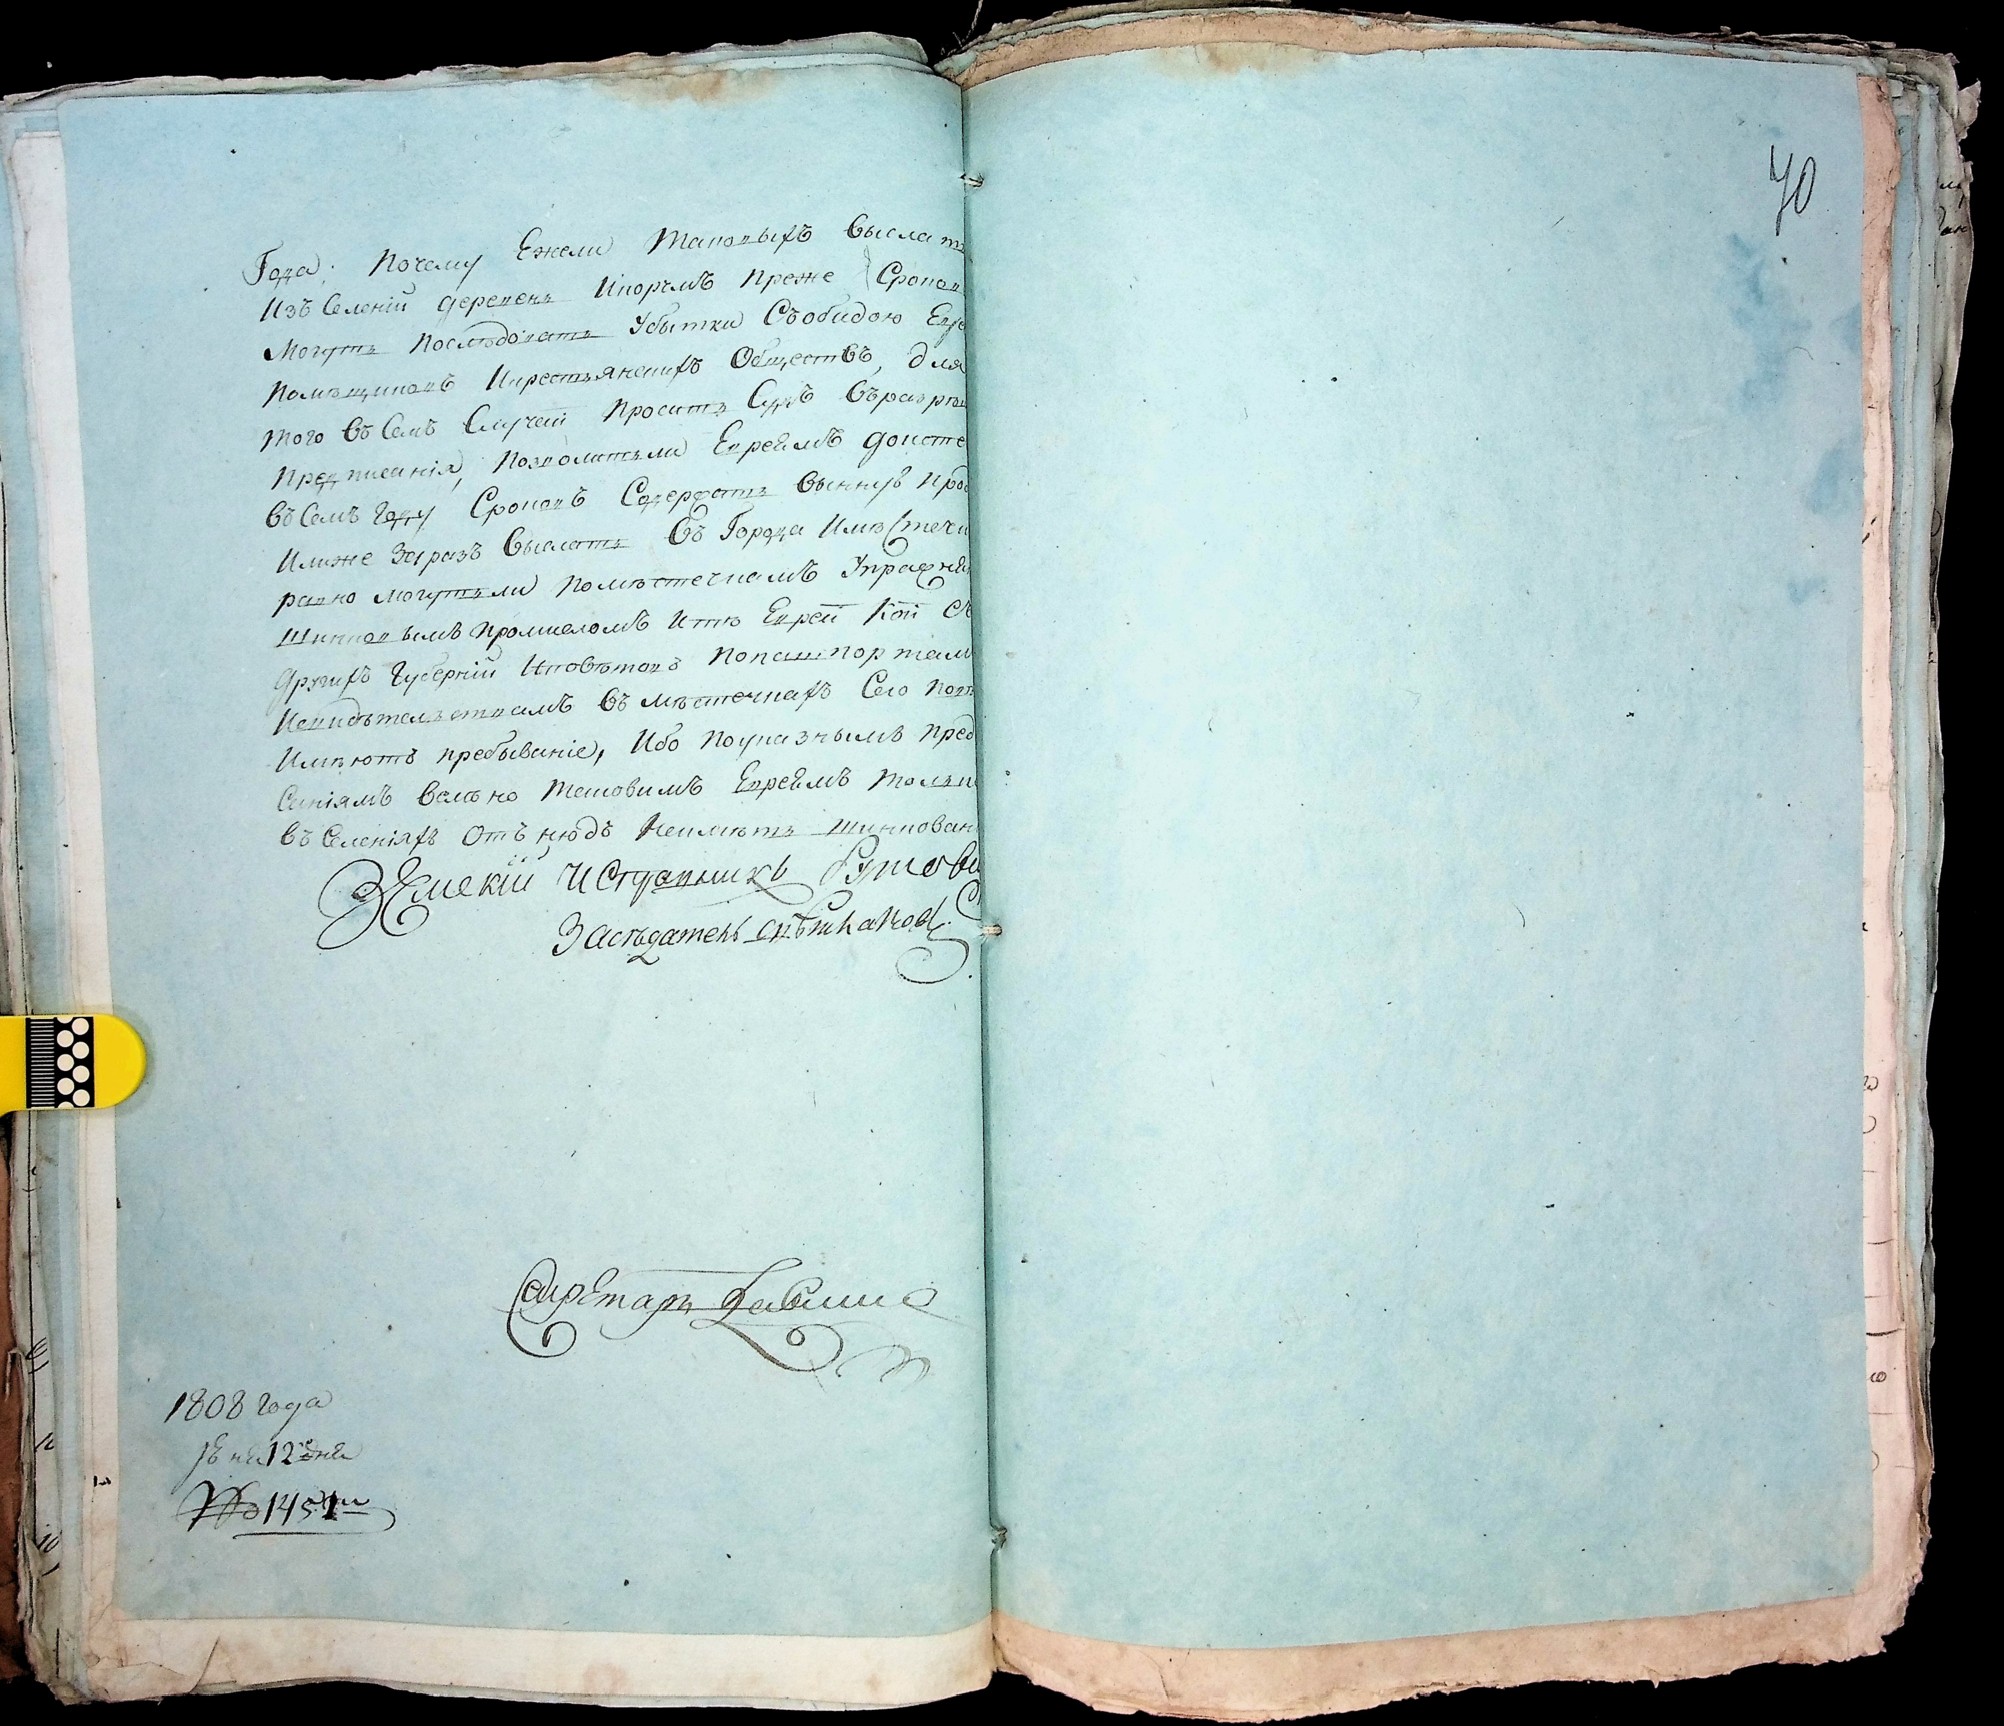 70
Года; почему Ежели таковыхъ выслать
изъ Селеній деревень икорчмъ преже Сроков
могутъ последовать убытки Собидою Евре
помѣщиковъ икрестьянскихъ Обществъ, для
того въ Семъ Случеи проситъ Судъ въразрѣш
предписанія, позволитьли Евреямъ доисте
въ Семъ Году Сроковъ Содержать
Илиже заразъ выслать въ Города Имѣстечк
равно могутьли помѣстечкамъ Упражня
Шинковымъ промисломъ итѣ Евреи Кои
другихъ Губерній иповѣтовъ попашпортам
Исвидѣтельствамъ въ мѣстечкахъ Сего пов
Имѣютъ пребываніе, Ибо поуказнымъ пред
Саніямъ велѣно таковимъ Евреямъ только
въ Селеніяхъ Отънюдъ Неимѣть шинкован
Земскій Исправникъ
Засѣдатель
Сикретарь
1808 года
12 дня
№ 1451